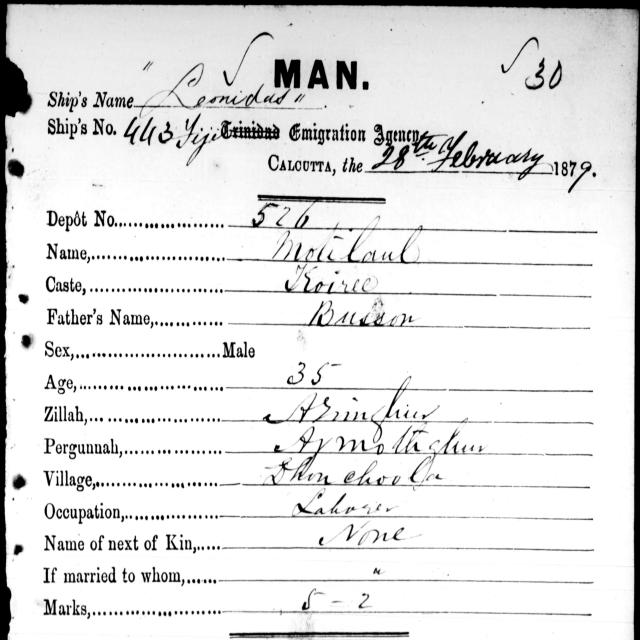 MAN.
30
Ship's Name "Leonidas"
Ship's No. 443 Fiji Trinidad Emigration Agency
CALCUTTA, the 28th February 1879.
Depôt No. 526
Name, Motilaul
Caste, Koiree
Father's Name, Busson
Sex, Male
Age, 35
Zillah,
Pergunnah,
Village,
Occupation, Laborer
Name of next of Kin, None
If married to whom, "
Marks, 5-2